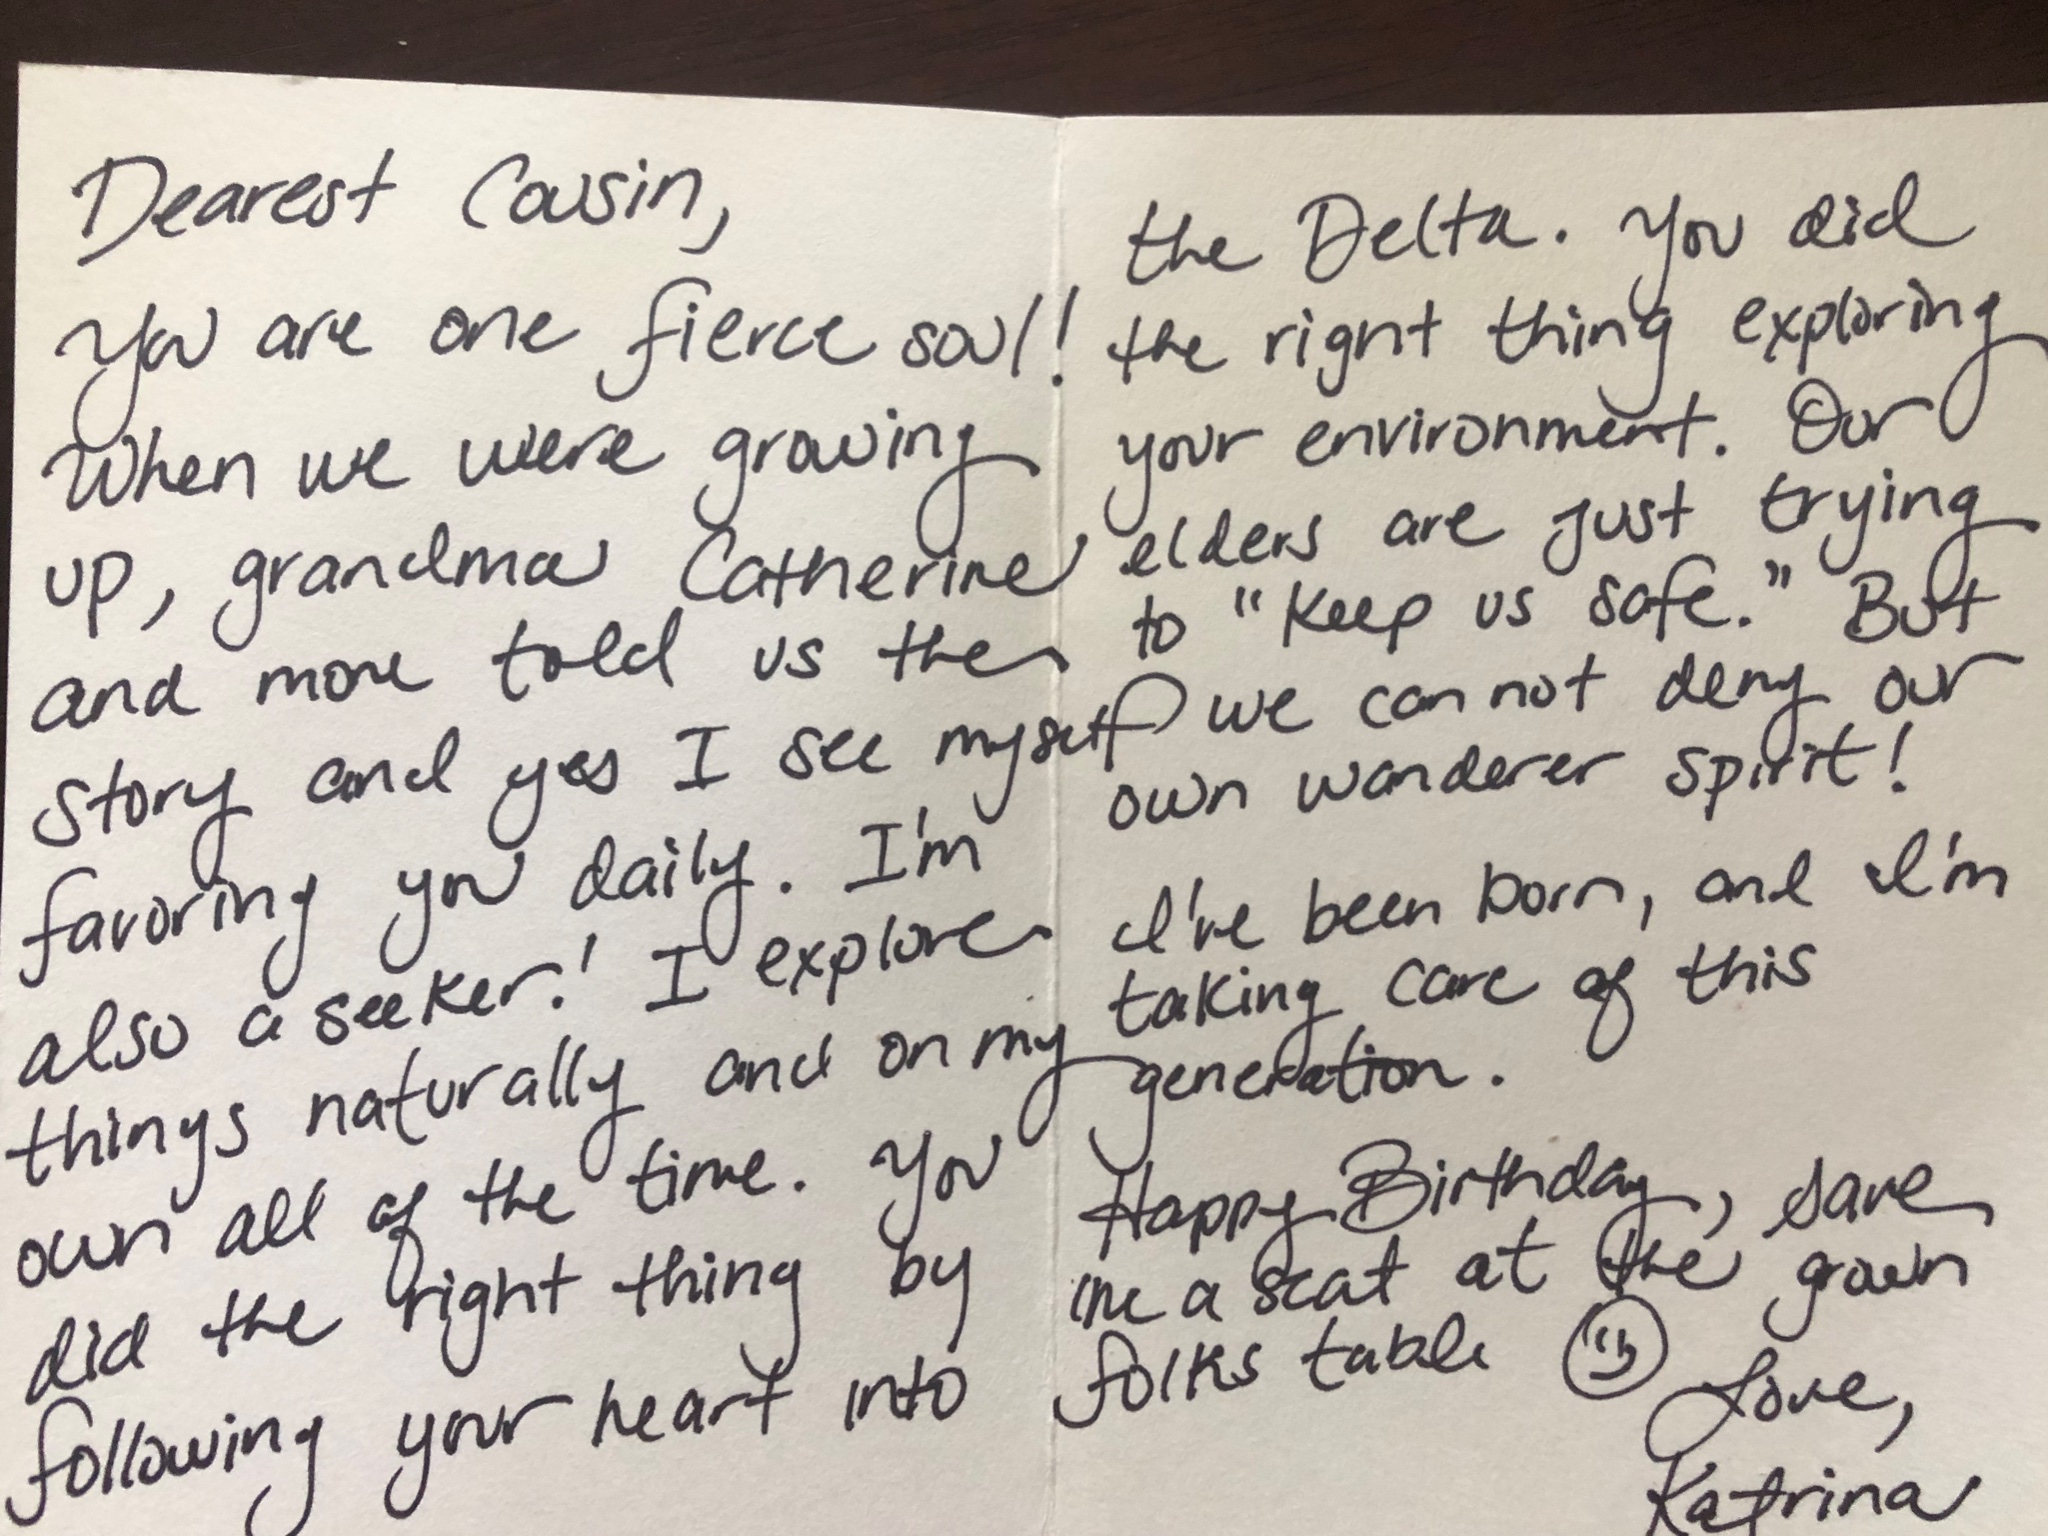 Dearest Cousin,
You are one fierce soul!
When we were growing
up, grandma Catherine
and more told us the
story and yes I see myself
favoring you daily. I'm
also a seeker! I explore
things naturally and on my
own all of the time. You
did the right thing by
following your heart into
the Delta. You did
the right thing exploring
your environment. Our
elders are just trying
to "Keep us safe." But
we can not deny our
own wanderer spirit!
I've been born, and I'm
taking care of this
generation.
Happy Birthday, save
me a seat at the grown
folks table
Love,
Katrina